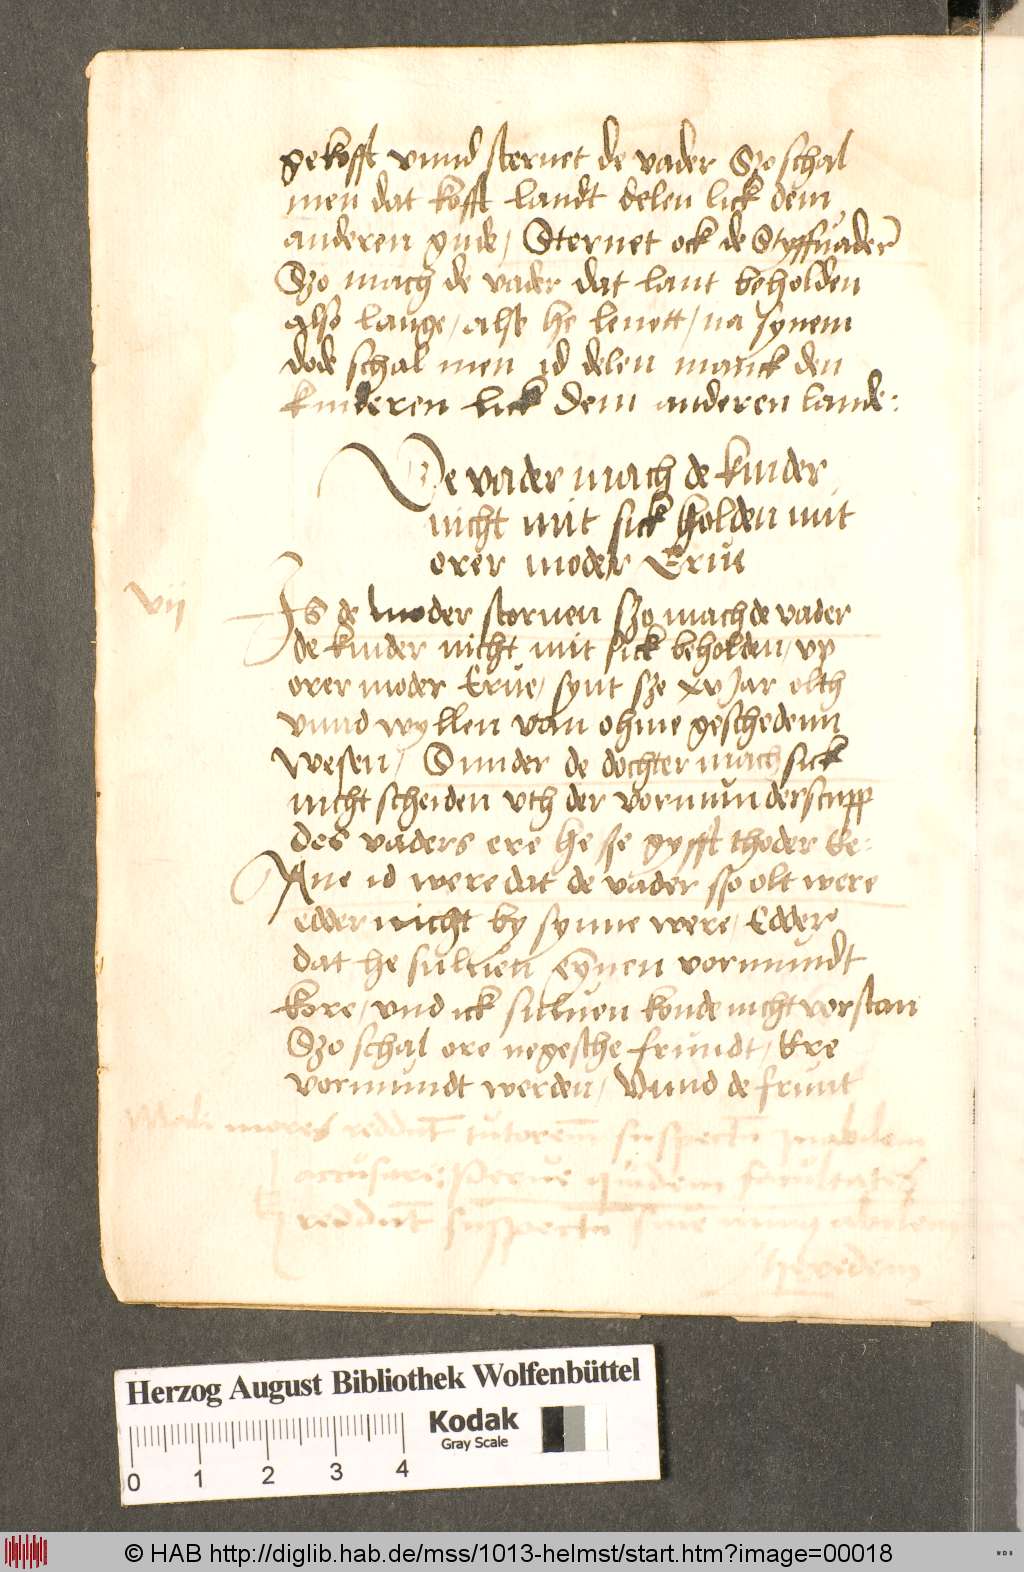 gekofft vnnd steruet de vader Szo schal
men dat kofft landt delen lick dem
anderen gude / Steruet ock de Styffuader
Szo mach de vader dat lant beholden
also lange / alse he leuett / na synem
dode schal men id delen manck den
kinderen lick dem anderen lande:
De vader mach de kinder
nicht mit sick holden mit
orer moder Erue
vij
Is de moder storuen szo mach de vader
de kinder nicht mit sick beholden / vp
orer moder Erue / synt sze xv Jar olth
vnnd wyllen van ohme geschedenn
wesen / Sunder de dochter mach sick
nicht scheiden vth der vormunderscupp
des vaders ere he se gyfft thoder Ee:
Ane id were dat de vader sso olt were
edder nicht by synne were / Edder
dat he suluen eynen vormundt
kore / vnd ick suluen konde nicht vorstan
Szo schal ore negesche frundt / Ere
vormundt werden / Vnnd de frunt
Mali mores reddunt tutorem suspectum
accusare:
reddunt suspectum sine
Herzog August Bibliothek Wolfenbüttel
Kodak
Gray Scale
0 1 2 3 4
© HAB http://diglib.hab.de/mss/1013-helmst/start.htm?image=00018